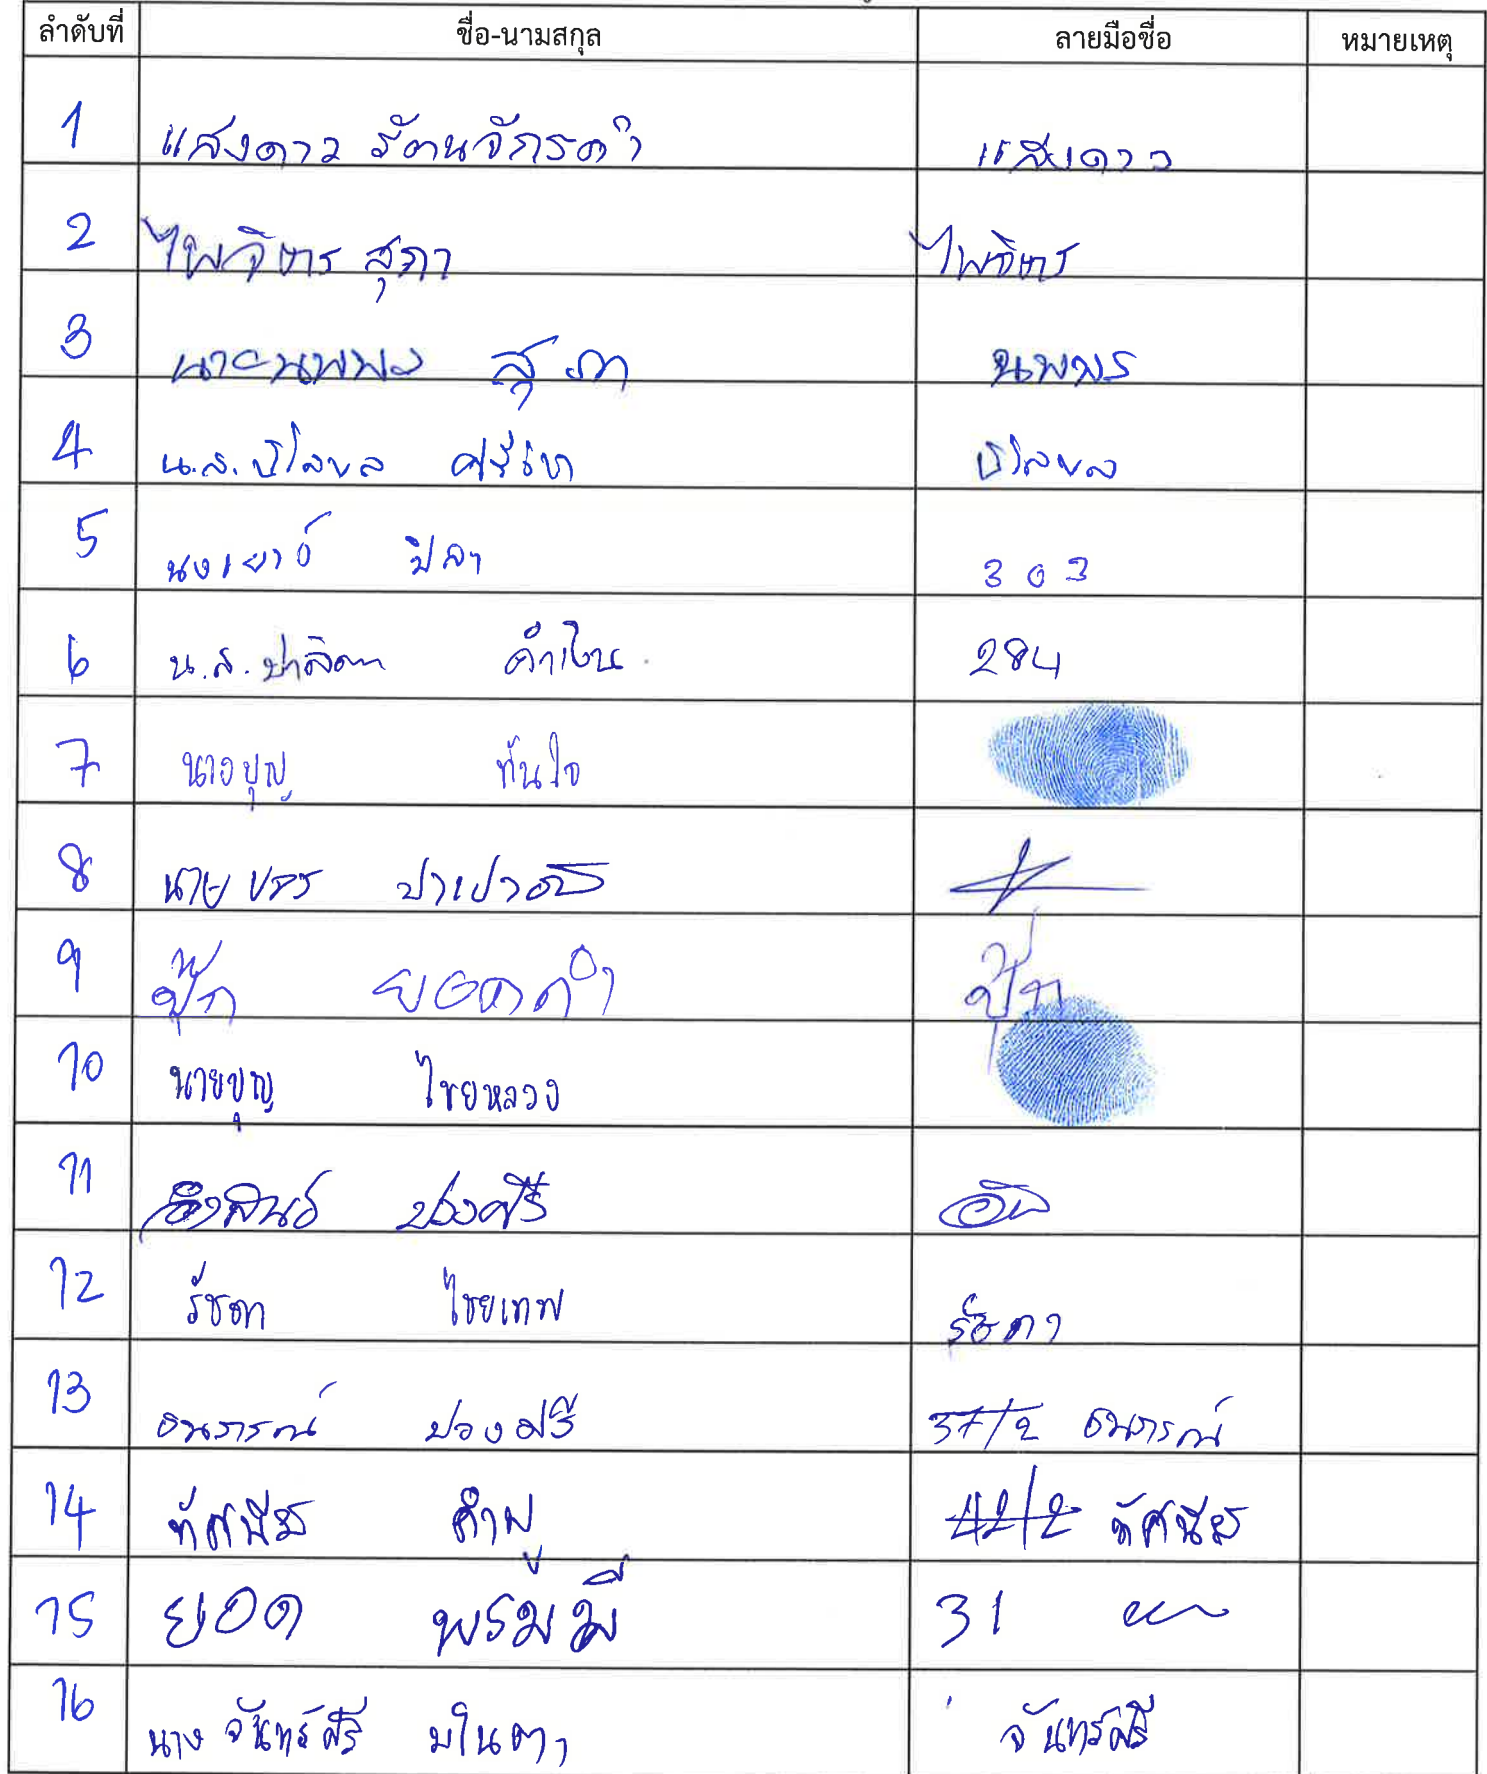 ลำดับที่ ชื่อ-นามสกุล ลายมือชื่อ หมายเหตุ
1 แสงดาว รัตนจักรคำ แสงดาว
2 ไพจิตร สุภา ไพจิตร
3 นายนพพร สุภา นพพร
4 น.ส. วิไลพล ศรีใจ วิไลพล
5 นงเยาว์ ปิลา 303
6 น.ส. ปาลิตา คำเงิน 284
7 นางบุญ ทันใจ
8 นาย ขจร
9 ปุ๊ก ยอดคำ ปุ๊ก
10 นายบุญ ไชยหลวง
11 ปวงศรี
12 รัชดา ไชยเทพ รัชดา
13 ธนภรณ์ ปวงศรี 37/2 ธนภรณ์
14 ทัศนีย์ คำพู 42/2 ทัศนีย์
15 ยอด พรมมี 31
16 นาง จันทร์ศรี มโนตา จันทร์ศรี